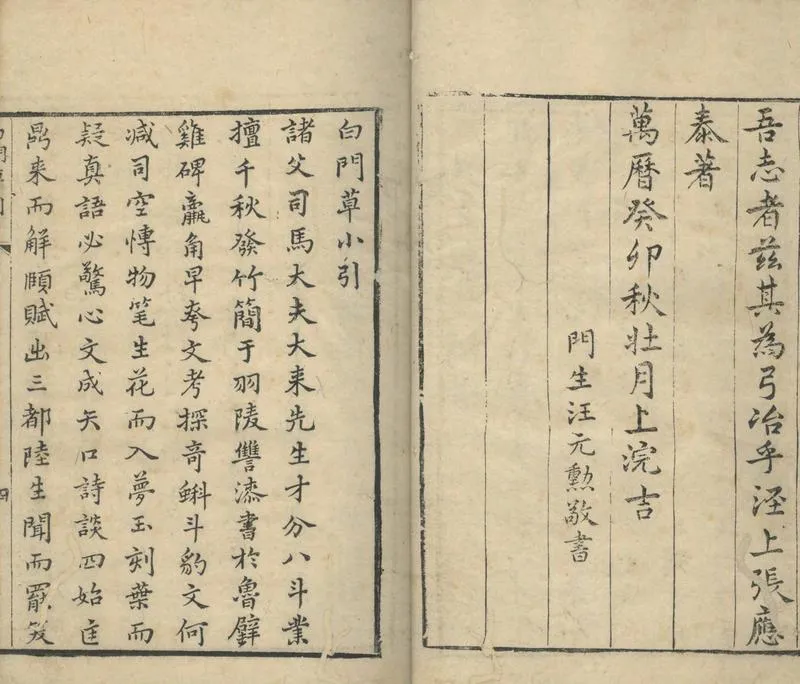 吾志者茲其為弓冶乎涇上張應
泰著
萬曆癸卯秋壯月上浣吉
門生汪元勲敬書
白門草小引
諸父司馬大夫大来先生才分八斗業
擅千秋發竹簡于羽陵讐漆書於魯壁
雞碑羸角早夸文考探竒蝌斗豹文何
减司空愽物笔生花而入夢玉刻葉而
疑真語必驚心文成矢口詩談四始匡
鼎来而解頤賦出三都陸生聞而罷笑